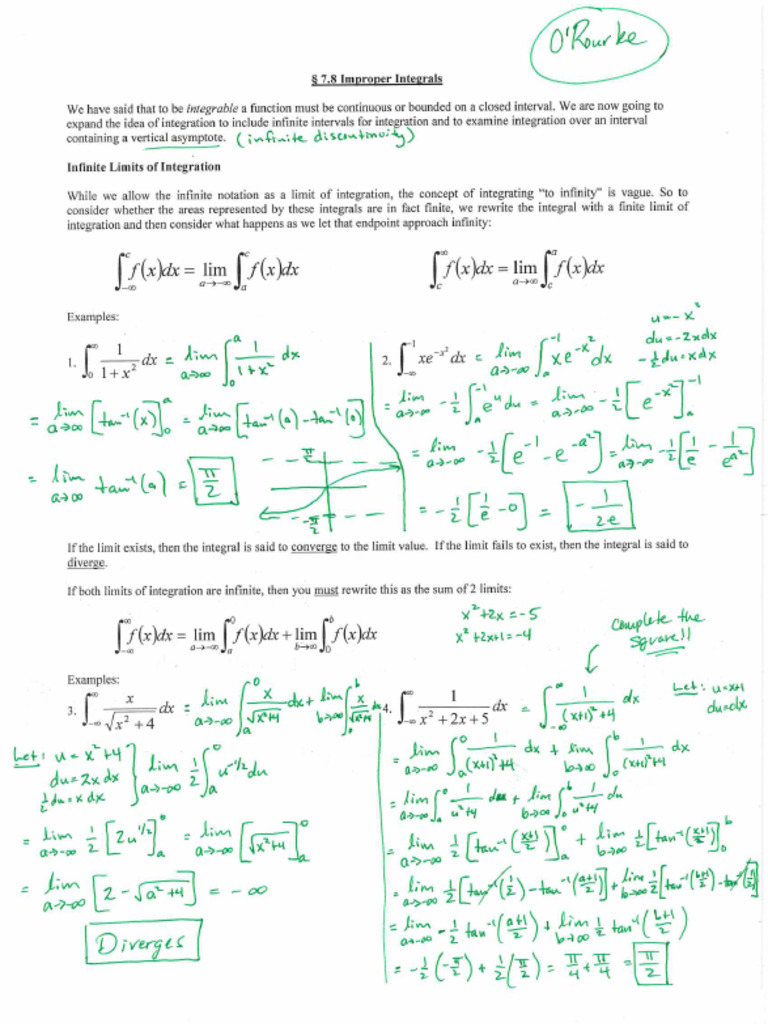 O'Rourke
§ 7.8 Improper Integrals
We have said that to be integrable a function must be continuous or bounded on a closed interval. We are now going to
expand the idea of integration to include infinite intervals for integration and to examine integration over an interval
containing a vertical asymptote. (infinite discontinuity)
Infinite Limits of Integration
While we allow the infinite notation as a limit of integration, the concept of integrating "to infinity" is vague. So to
consider whether the areas represented by these integrals are in fact finite, we rewrite the integral with a finite limit of
integration and then consider what happens as we let that endpoint approach infinity:
∫_{-∞}^{c} f(x)dx = lim_{a→-∞} ∫_{a}^{c} f(x)dx
∫_{c}^{∞} f(x)dx = lim_{a→∞} ∫_{c}^{a} f(x)dx
Examples:
1. ∫_{0}^{∞} 1/(1+x²) dx = lim_{a→∞} ∫_{0}^{a} 1/(1+x²) dx
= lim_{a→∞} [tan⁻¹(x)]_{0}^{a} = lim_{a→∞} [tan⁻¹(a) - tan⁻¹(0)]
= lim_{a→∞} tan⁻¹(a) = π/2
π/2
-π/2
2. ∫_{-∞}^{-1} xe^{-x²} dx = lim_{a→-∞} ∫_{a}^{-1} xe^{-x²} dx
u = -x²
du = -2xdx
-½du = xdx
= lim_{a→-∞} -½ ∫_{a}^{-1} e^u du = lim_{a→-∞} -½ [e^{-x²}]_{a}^{-1}
= lim_{a→-∞} -½ [e^{-1} - e^{-a²}] = lim_{a→-∞} -½ [1/e - 1/e^{a²}]
= -½ [1/e - 0] = -1/2e
If the limit exists, then the integral is said to converge to the limit value. If the limit fails to exist, then the integral is said to
diverge.
If both limits of integration are infinite, then you must rewrite this as the sum of 2 limits:
∫_{-∞}^{∞} f(x)dx = lim_{a→-∞} ∫_{a}^{0} f(x)dx + lim_{b→∞} ∫_{0}^{b} f(x)dx
x²+2x = -5
x²+2x+1 = -4
Complete the
square!!
Examples:
3. ∫_{-∞}^{∞} x/√(x²+4) dx = lim_{a→-∞} ∫_{a}^{0} x/√(x²+4) dx + lim_{b→∞} ∫_{0}^{b} x/√(x²+4) dx
Let: u = x²+4
du = 2x dx
½du = x dx
lim_{a→-∞} ½ ∫_{a}^{0} u^{-1/2} du
= lim_{a→-∞} ½ [2u^{1/2}]_{a}^{0} = lim_{a→-∞} [√(x²+4)]_{a}^{0}
= lim_{a→-∞} [2 - √(a²+4)] = -∞
Diverges
4. ∫_{-∞}^{∞} 1/(x²+2x+5) dx = ∫_{-∞}^{∞} 1/((x+1)²+4) dx
Let: u = x+1
du = dx
= lim_{a→-∞} ∫_{a}^{0} 1/((x+1)²+4) dx + lim_{b→∞} ∫_{0}^{b} 1/((x+1)²+4) dx
= lim_{a→-∞} ∫_{a}^{0} 1/(u²+4) du + lim_{b→∞} ∫_{0}^{b} 1/(u²+4) du
= lim_{a→-∞} ½ [tan⁻¹((x+1)/2)]_{a}^{0} + lim_{b→∞} ½ [tan⁻¹((x+1)/2)]_{0}^{b}
= lim_{a→-∞} ½ [tan⁻¹(½) - tan⁻¹((a+1)/2)] + lim_{b→∞} ½ [tan⁻¹((b+1)/2) - tan⁻¹(½)]
= lim_{a→-∞} -½ tan⁻¹((a+1)/2) + lim_{b→∞} ½ tan⁻¹((b+1)/2)
= -½(-π/2) + ½(π/2) = π/4 + π/4 = π/2